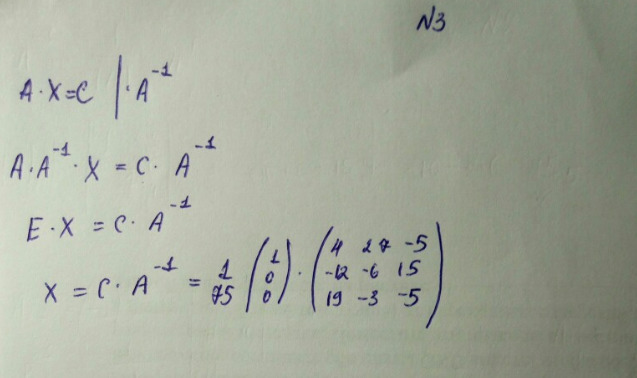 N3
A·X=C |·A⁻¹
A·A⁻¹·X = C·A⁻¹
E·X = C·A⁻¹
X = C·A⁻¹ = 1/75 (1 0 0) · (4 27 -5 -12 -6 15 19 -3 -5)